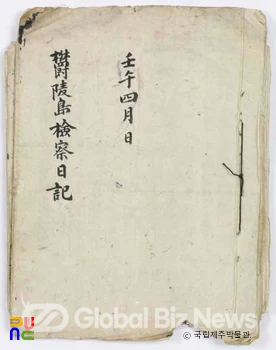 壬午四月日
欝陵島檢察日記
Global Biz News
PUNC
© 국립제주박물관